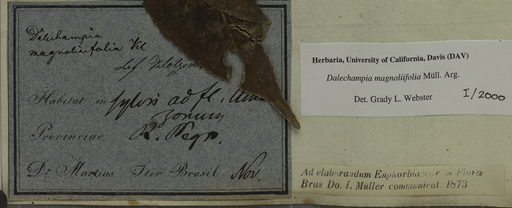 Dalechampia
magnoliifolia
Habitat in sylvis ad fl. Ama
zonum
Provinciae R. Negr.
Dr Martius Iter Brasil. Nov.
Herbaria, University of California, Davis (DAV)
Dalechampia magnoliifolia Müll. Arg.
Det. Grady L. Webster I/2000
Ad elaborandum Euphorbiaceas in Flora
Bras Do. J. Müller communicat. 1873